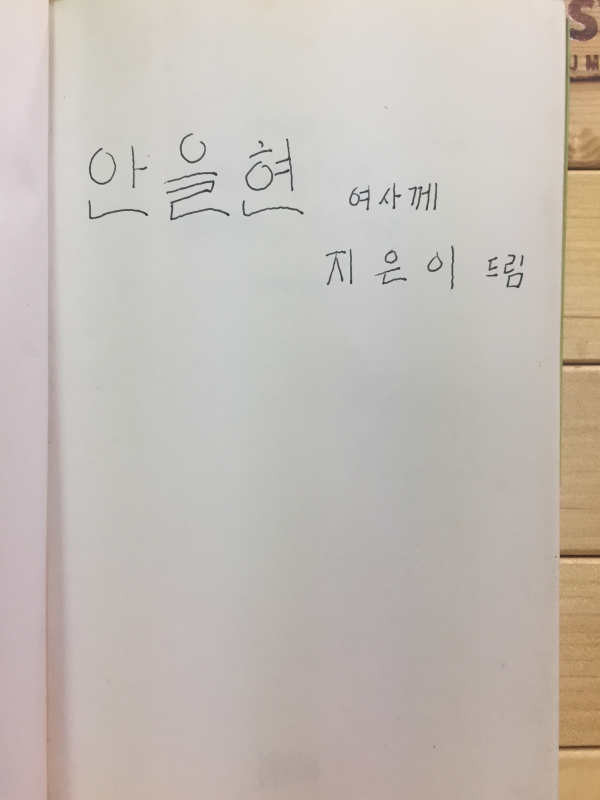 안을현 여사께
지은이 드림